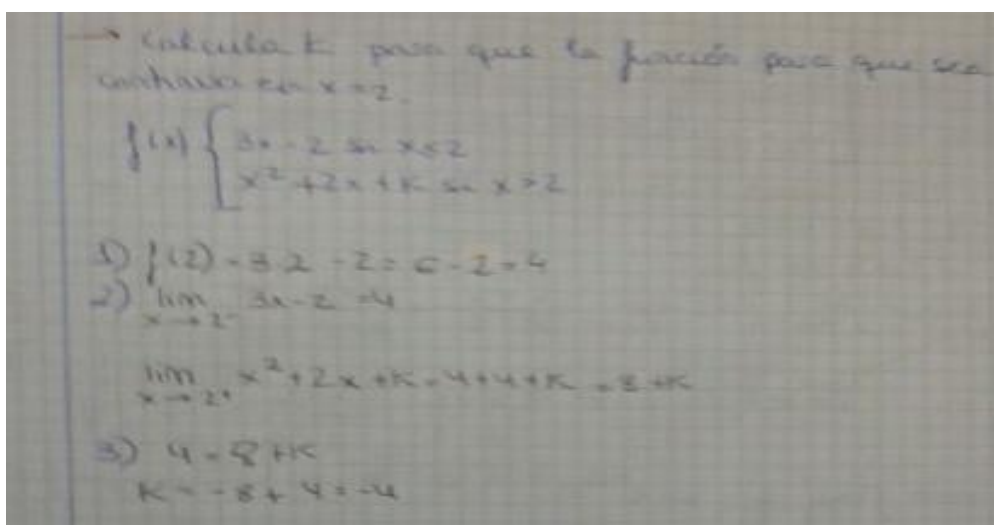 → Calcula k para que la función para que sea
continua en x = 2.
f(x) { 3x - 2 si x ≤ 2
x² + 2x + k si x > 2
1) f(2) = 3·2 - 2 = 6 - 2 = 4
2) lim 3x - 2 = 4
x → 2⁻
lim x² + 2x + k = 4 + 4 + k = 8 + k
x → 2⁺
3) 4 = 8 + k
k = -8 + 4 = -4